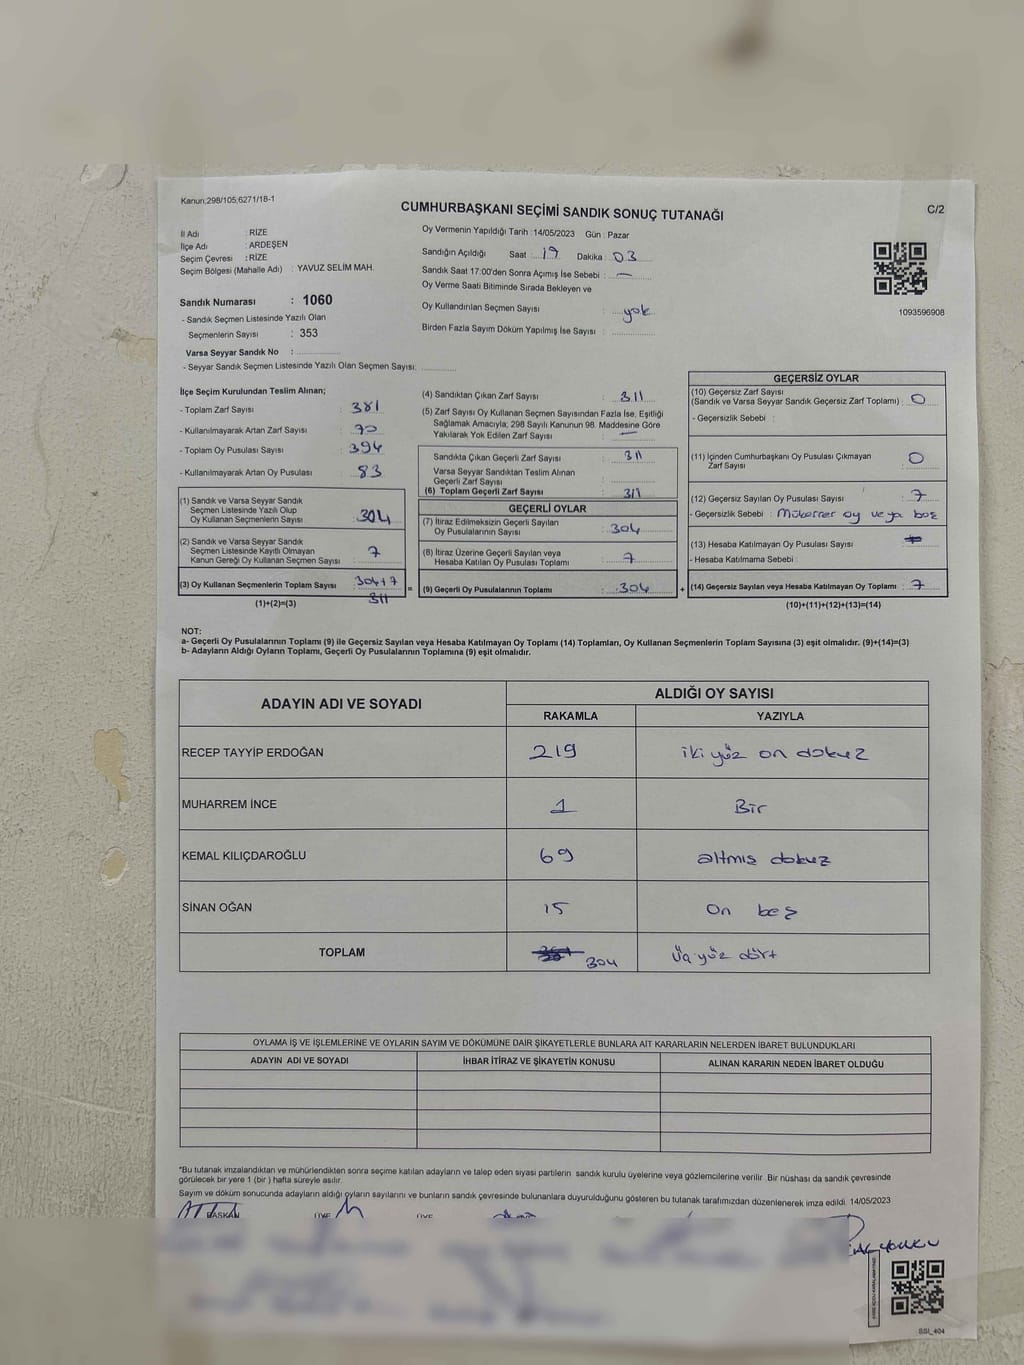 Kanun;298/105;6271/18-1
CUMHURBAŞKANI SEÇİMİ SANDIK SONUÇ TUTANAĞI
C/2
İl Adı : RİZE
İlçe Adı : ARDEŞEN
Seçim Çevresi : RİZE
Seçim Bölgesi (Mahalle Adı) : YAVUZ SELİM MAH.
Sandık Numarası : 1060
- Sandık Seçmen Listesinde Yazılı Olan
Seçmenlerin Sayısı : 353
Varsa Seyyar Sandık No :
- Seyyar Sandık Seçmen Listesinde Yazılı Olan Seçmen Sayısı:
Oy Vermenin Yapıldığı Tarih :14/05/2023 Gün : Pazar
Sandığın Açıldığı Saat : 19 Dakika : 03
Sandık Saat 17:00'den Sonra Açımış İse Sebebi : —
Oy Verme Saati Bitiminde Sırada Bekleyen ve
Oy Kullandırılan Seçmen Sayısı : yok
Birden Fazla Sayım Döküm Yapılmış İse Sayısı :
1093596908
İlçe Seçim Kurulundan Teslim Alınan;
- Toplam Zarf Sayısı : 381
- Kullanılmayarak Artan Zarf Sayısı : 70
- Toplam Oy Pusulası Sayısı : 394
- Kullanılmayarak Artan Oy Pusulası : 83
(1) Sandık ve Varsa Seyyar Sandık
Seçmen Listesinde Yazılı Olup
Oy Kullanan Seçmenlerin Sayısı : 304
(2) Sandık ve Varsa Seyyar Sandık
Seçmen Listesinde Kayıtlı Olmayan
Kanun Gereği Oy Kullanan Seçmen Sayısı : 7
(3) Oy Kullanan Seçmenlerin Toplam Sayısı : 304+7
311
(1)+(2)=(3)
(4) Sandıktan Çıkan Zarf Sayısı : 311
(5) Zarf Sayısı Oy Kullanan Seçmen Sayısından Fazla İse, Eşitliği
Sağlamak Amacıyla; 298 Sayılı Kanunun 98. Maddesine Göre
Yakılarak Yok Edilen Zarf Sayısı : —
Sandıkta Çıkan Geçerli Zarf Sayısı : 311
Varsa Seyyar Sandıktan Teslim Alınan
Geçerli Zarf Sayısı :
(6) Toplam Geçerli Zarf Sayısı : 311
GEÇERLİ OYLAR
(7) İtiraz Edilmeksizin Geçerli Sayılan
Oy Pusulalarının Sayısı : 304
(8) İtiraz Üzerine Geçerli Sayılan veya
Hesaba Katılan Oy Pusulası Toplamı : 7
= (9) Geçerli Oy Pusulalarının Toplamı : 304 +
GEÇERSİZ OYLAR
(10) Geçersiz Zarf Sayısı
(Sandık ve Varsa Seyyar Sandık Geçersiz Zarf Toplamı) : 0
- Geçersizlik Sebebi :
(11) İçinden Cumhurbaşkanı Oy Pusulası Çıkmayan
Zarf Sayısı : 0
(12) Geçersiz Sayılan Oy Pusulası Sayısı : 7
- Geçersizlik Sebebi : Mükerrer oy veya boş
(13) Hesaba Katılmayan Oy Pusulası Sayısı :
- Hesaba Katılmama Sebebi
(14) Geçersiz Sayılan veya Hesaba Katılmayan Oy Toplamı : 7
(10)+(11)+(12)+(13)=(14)
NOT:
a- Geçerli Oy Pusulalarının Toplamı (9) ile Geçersiz Sayılan veya Hesaba Katılmayan Oy Toplamı (14) Toplamları, Oy Kullanan Seçmenlerin Toplam Sayısına (3) eşit olmalıdır. (9)+(14)=(3)
b- Adayların Aldığı Oyların Toplamı, Geçerli Oy Pusulalarının Toplamına (9) eşit olmalıdır.
ADAYIN ADI VE SOYADI
ALDIĞI OY SAYISI
RAKAMLA YAZIYLA
RECEP TAYYİP ERDOĞAN 219 iki yüz on dokuz
MUHARREM İNCE 1 Bir
KEMAL KILIÇDAROĞLU 69 altmış dokuz
SİNAN OĞAN 15 On beş
TOPLAM 304 Üç yüz dört
OYLAMA İŞ VE İŞLEMLERİNE VE OYLARIN SAYIM VE DÖKÜMÜNE DAİR ŞİKAYETLERLE BUNLARA AİT KARARLARIN NELERDEN İBARET BULUNDUKLARI
ADAYIN ADI VE SOYADI İHBAR İTİRAZ VE ŞİKAYETİN KONUSU ALINAN KARARIN NEDEN İBARET OLDUĞU
*Bu tutanak imzalandıktan ve mühürlendikten sonra seçime katılan adayların ve talep eden siyasi partilerin sandık kurulu üyelerine veya gözlemcilerine verilir. Bir nüshası da sandık çevresinde
görülecek bir yere 1 (bir ) hafta süreyle asılır.
Sayım ve döküm sonucunda adayların aldığı oyların sayılarını ve bunların sandık çevresinde bulunanlara duyurulduğunu gösteren bu tutanak tarafımızdan düzenlenerek imza edildi. 14/05/2023
BAŞKAN ÜYE ÜYE
SSI_404